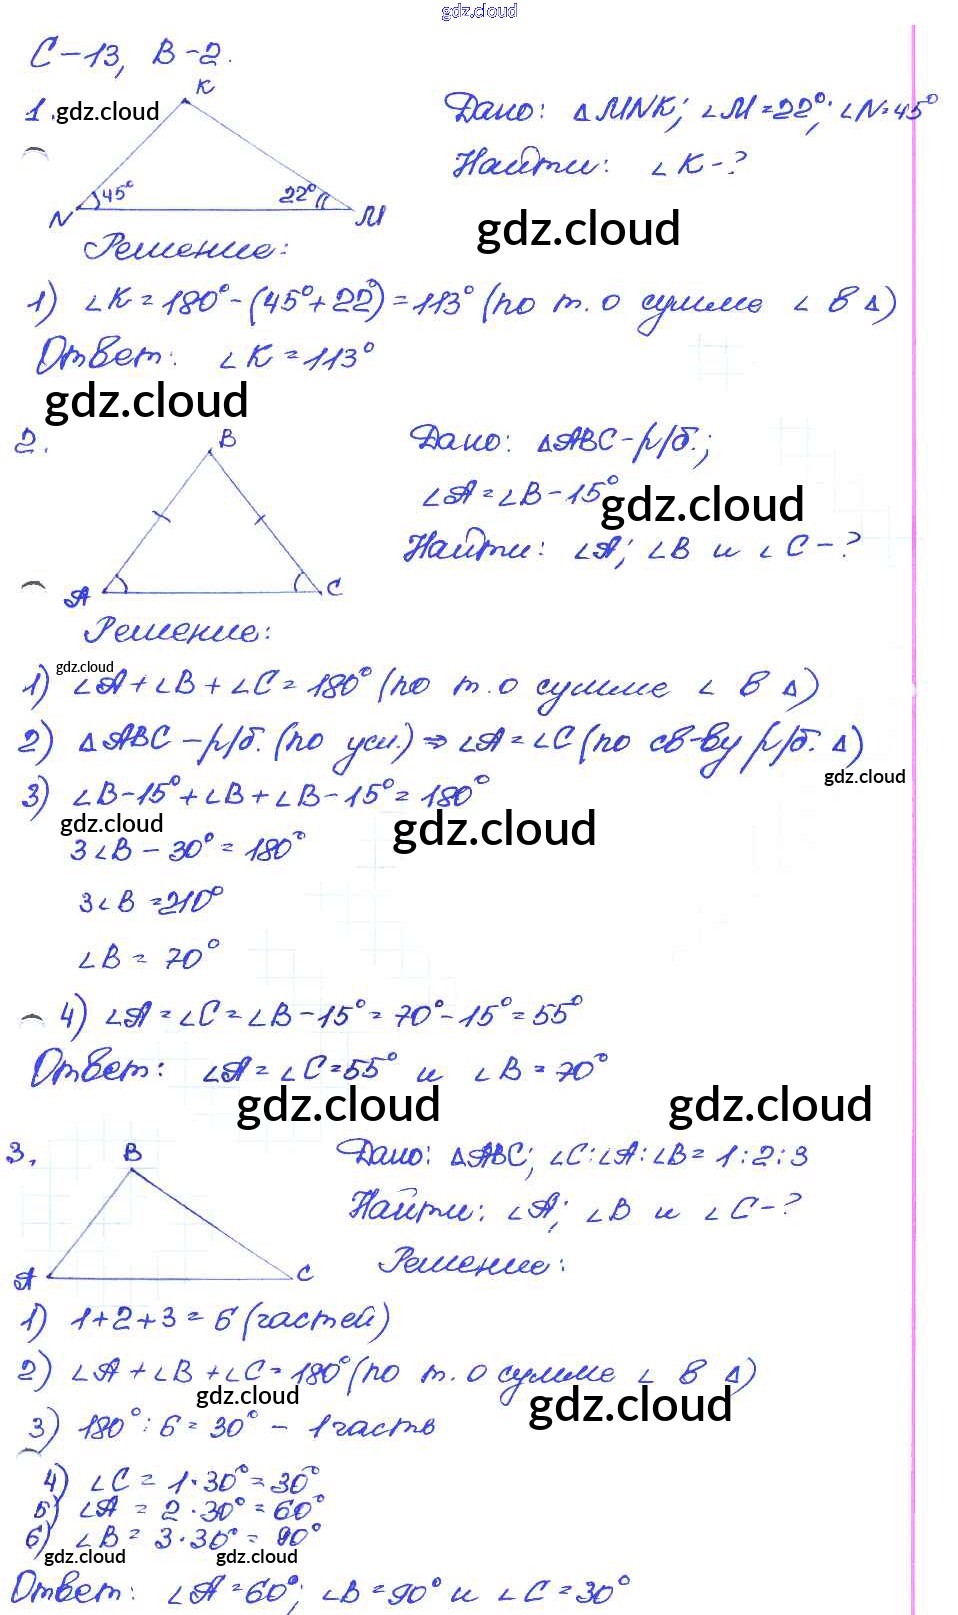 gdz.cloud
С-13, В-2.
1. gdz.cloud
K
45°
22°
N
M
Дано: △MNK; ∠M=22°; ∠N=45°
Найти: ∠K-?
gdz.cloud
Решение:
1) ∠K=180°-(45°+22°)=113° (по т. о сумме ∠ в △)
Ответ: ∠K=113°
gdz.cloud
2.
B
A
C
Дано: △ABC-р/б.;
∠A=∠B-15°
gdz.cloud
Найти: ∠A; ∠B и ∠C-?
Решение:
gdz.cloud
1) ∠A+∠B+∠C=180° (по т. о сумме ∠ в △)
2) △ABC-р/б. (по усл.) ⇒ ∠A=∠C (по св-ву р/б. △)
gdz.cloud
3) ∠B-15°+∠B+∠B-15°=180°
gdz.cloud
gdz.cloud
3∠B-30°=180°
3∠B=210°
∠B=70°
4) ∠A=∠C=∠B-15°=70°-15°=55°
Ответ: ∠A=∠C=55° и ∠B=70°
gdz.cloud
gdz.cloud
3.
B
A
C
Дано: △ABC; ∠C:∠A:∠B=1:2:3
Найти: ∠A; ∠B и ∠C-?
Решение:
1) 1+2+3=6 (частей)
2) ∠A+∠B+∠C=180° (по т. о сумме ∠ в △)
gdz.cloud
gdz.cloud
3) 180°:6=30° - 1 часть
4) ∠C=1·30°=30°
5) ∠A=2·30°=60°
6) ∠B=3·30°=90°
gdz.cloud
gdz.cloud
Ответ: ∠A=60°; ∠B=90° и ∠C=30°